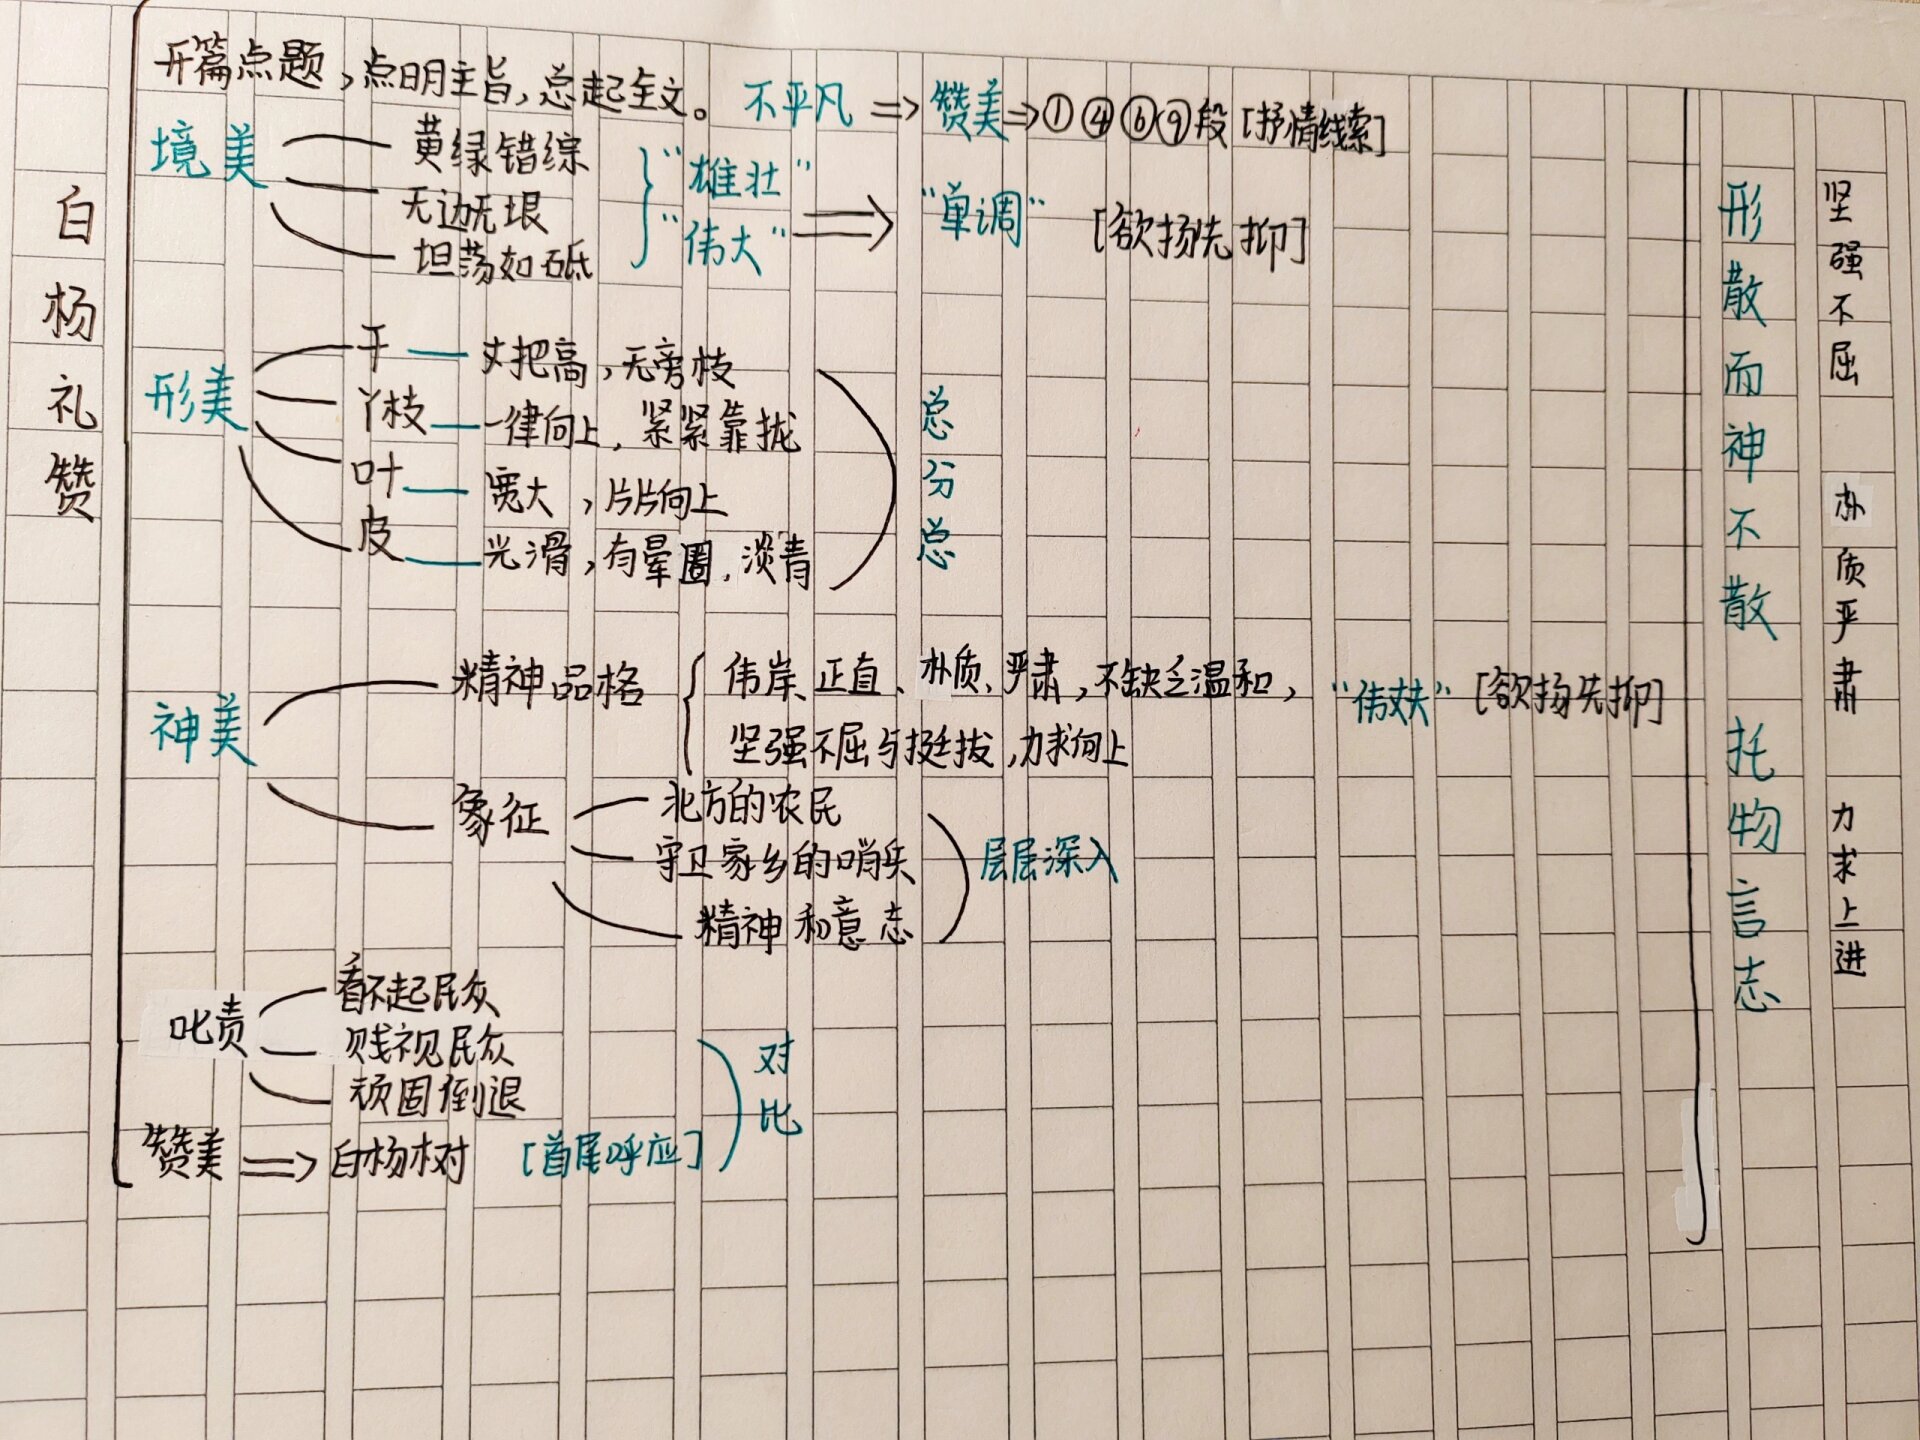 白杨礼赞
开篇点题，点明主旨，总起全文。 不平凡 => 赞美 => ①④⑥⑨段 [抒情线索]
境美
黄绿错综
无边无垠
坦荡如砥
"雄壮"
"伟大" => "单调" [欲扬先抑]
形美
干 — 丈把高，无旁枝
丫枝 — 一律向上，紧紧靠拢
叶 — 宽大，片片向上
皮 — 光滑，有晕圈，淡青
总分总
神美
精神品格
伟岸、正直、朴质、严肃，不缺乏温和，
坚强不屈与挺拔，力求向上
"伟丈夫" [欲扬先抑]
象征
北方的农民
守卫家乡的哨兵
精神和意志
层层深入
叱责
看不起民众
贱视民众
顽固倒退
赞美 => 白杨树 [首尾呼应]
对比
形散而神不散 托物言志
坚强不屈 朴质严肃 力求上进